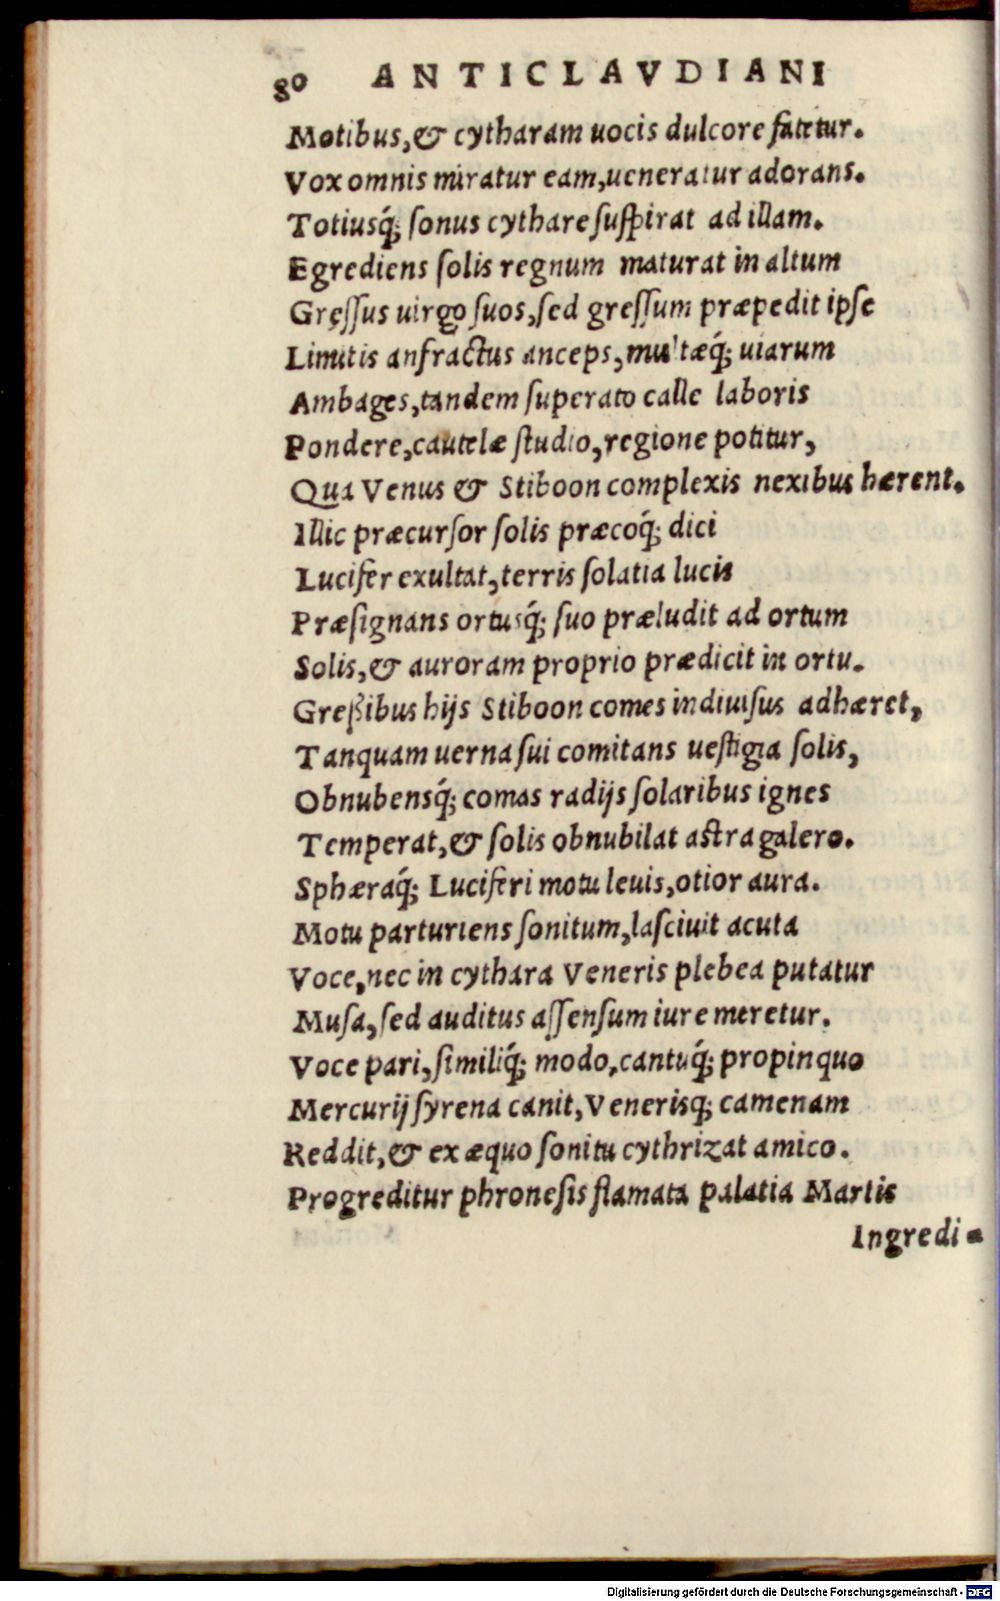 80 ANTICLAVDIANI
Motibus,& cytharam uocis dulcore fatetur.
Vox omnis miratur eam,ueneratur adorans.
Totiusq́; sonus cythare suspirat ad illam.
Egrediens solis regnum maturat in altum
Gressus uirgo suos,sed gressum præpedit ipse
Limitis anfractus anceps,multæq́; uiarum
Ambages,tandem superato calle laboris
Pondere,cautelæ studio,regione potitur,
Qua Venus & Stiboon complexis nexibus hærent.
Illic præcursor solis præcoq́; dici
Lucifer exultat,terris solatia lucis
Præsignans ortusq́; suo præludit ad ortum
Solis,& auroram proprio prædicit in ortu.
Greßibus hijs Stiboon comes indiuisus adhæret,
Tanquam uerna sui comitans uestigia solis,
Obnubensq́; comas radijs solaribus ignes
Temperat,& solis obnubilat astra galero.
Sphæraq́; Luciferi motu leuis,otior aura.
Motu parturiens sonitum,lasciuit acuta
Voce,nec in cythara Veneris plebea putatur
Musa,sed auditus assensum iure meretur.
Voce pari,similiq́; modo,cantuq́; propinquo
Mercurij syrena canit,Venerisq; camenam
Reddit,& ex æquo sonitu cythrizat amico.
Progreditur phronesis flamata palatia Martis
Ingredi-
Digitalisierung gefördert durch die Deutsche Forschungsgemeinschaft - DFG